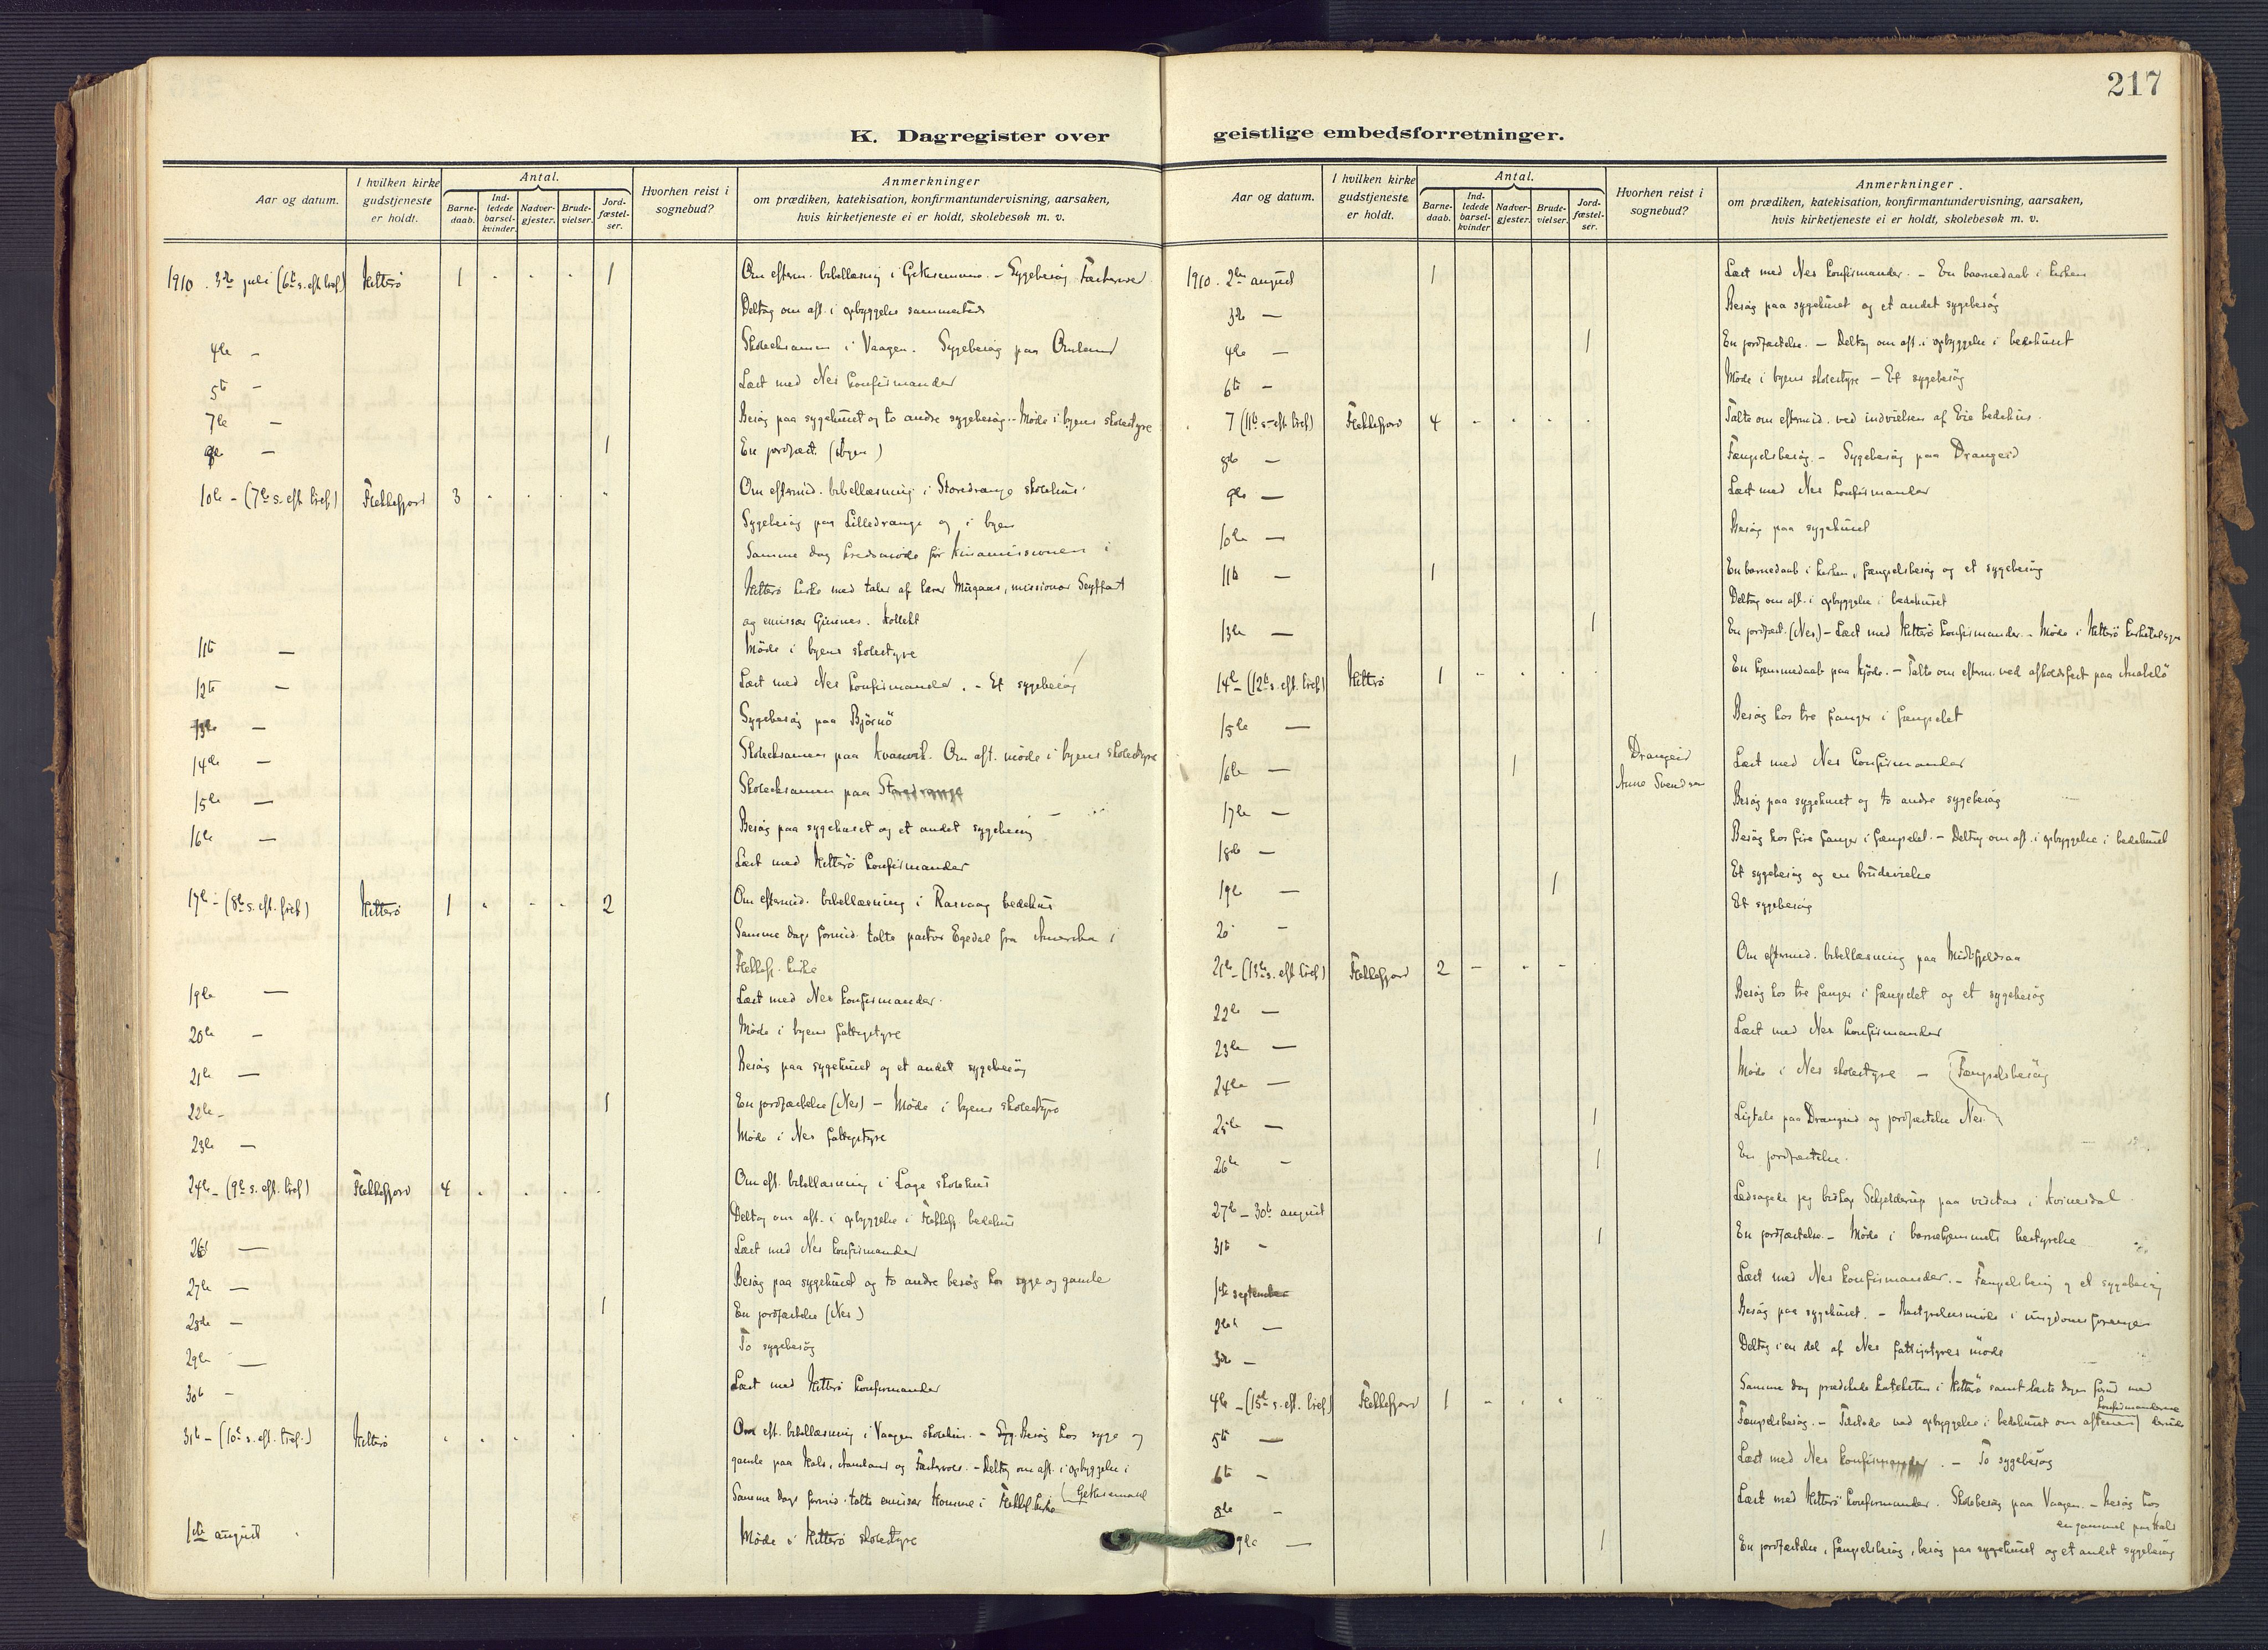 217
K. Dagregister over
geistlige embedsforretninger.
Aar og datum.
I hvilken kirke gudstjeneste er holdt.
Antal.
Barne-daab.
Ind-ledede barsel-kvinder.
Nadver-gjester.
Brude-vielser.
Jord-fæstel-ser.
Hvorhen reist i sognebud?
Anmerkninger
om prædiken, katekisation, konfirmantundervisning, aarsaken,
hvis kirketjeneste ei er holdt, skolebesøk m. v.
1910. 3die juli (6te s. eft. tref.) Hitterö 1 . . . 1 Om efterm. bibellæsning i Gethsemane. - Sygebesög
Deltog om aft. i opbyggelse sammesteds
4de - Skoleeksamen i Vaagen. Sygebesög paa
5te - Læst med Nes konfirmander
7de - Besög paa sygehuset og to andre sygebesög. - Möde i byens skolestyre
- 1 En jordfæst. (byen)
10de - (7de s. eft. tref.) Flekkefjord 3 . . . . Om eftermid. bibellæsning i Storedrange skolehus
Sygebesög paa Lilledrange og i byen
Samme dag kredsmöde for kinamissionen i
Hitterö kirke med taler af lærer missionær
og emissær Kollekt
11te - Möde i byens skolestyre
12te - Læst med Nes konfirmander. - Et sygebesög
13de - Sygebesög paa Björnö
14de - Skoleeksamen paa Kvanvik. Om aft. möde i byens skolestyre
15de - Skoleeksamen paa Storedrange
16de - Besög paa sygehuset og et andet sygebesög
Læst med Hitterö konfirmander
17de - (8de s. eft. tref.) Hitterö 1 . . . 2 Om eftermid. bibellæsning i Rasvaag bedehus
Samme dags formid. talte pastor Egedal fra Amerika i
Flekkefj. kirke
19de - Læst med Nes konfirmander.
20de - Möde i byens fattigstyre
21de - Besög paa sygehuset og et andet sygebesög
22de - 1 En jordfæstelse (Nes) - Möde i byens skolestyre
23de - Möde i Nes fattigstyre
24de - (9de s. eft. tref.) Flekkefjord 4 . . . . Om eft. bibellæsning i Loge skolehus
Deltog om aft. i opbyggelse i Flekkefj. bedehus
26de - Læst med Nes konfirmander
27de - Besög paa sygehuset og to andre besög hos syge og gamle
28de - 1 En jordfæstelse (Nes)
29de - To sygebesög
30te - Læst med Hitterö konfirmander
31te - (10de s. eft. tref.) Hitterö . . . . . Om eft. bibellæsning i Vaagen skolehus. - Besög hos syge og
gamle paa og - Deltog om aft. i opbyggelse i
Gethsemane
Samme dags formid. talte emissær Homme i Flekkefj. kirke
1ste august Möde i Hitterö skolestyre
Aar og datum.
I hvilken kirke gudstjeneste er holdt.
Antal.
Barne-daab.
Ind-ledede barsel-kvinder
Nadver-gjester.
Brude-vielser.
Jord-fæstel-ser.
Hvorhen reist i sognebud?
Anmerkninger.
om prædiken, katekisation, konfirmantundervisning, aarsaken,
hvis kirketjeneste ei er holdt, skolebesøk m. v.
1910. 2den august 1 Læst med Nes konfirmander. - En barnedaab i kirken
3die - Besög paa sygehuset og et andet sygebesög
4de - 1 En jordfæstelse. - Deltog om aft. i opbyggelse i bedehuset
6te - Möde i byens skolestyre - Et sygebesög
7 (11te s. eft. tref.) Flekkefjord 4 . . . . Talte om eftermid. ved indvielsen af Eie bedehus.
8de - Fængselsbesög. - Sygebesög paa Drangeid
9de - Læst med Nes konfirmander
10de - Besög paa sygehuset
11te - 1 En barnedaab i kirken, fængselsbesög og et sygebesög
Deltog om aft. i opbyggelse i bedehuset
13de - 1 En jordfæst. (Nes) - Læst med Hitterö konfirmander. - Möde i Hitterö
14de - (12te s. eft. tref.) Hitterö 1 . . . . En hjemmedaab paa - Talte om efterm. ved afholdsfest paa
15de - Besög hos tre fanger i fængselet
16de - 1 Drangeid Læst med Nes konfirmander
Anne Svendsen
17de - Besög paa sygehuset og to andre sygebesög
18de - Besög hos fire fanger i fængselet. - Deltog om aft. i opbyggelse i bedehuset
19de - 1 Et sygebesög og en brudevielse
20 - Et sygebesög
21de - (13de s. eft. tref.) Flekkefjord 2 - . - . Om eftermid. bibellæsning paa Midbfjeldsaa
22de - Besög hos tre fanger i fængselet og et sygebesög
23de - Læst med Nes konfirmander
24de - Möde i Nes skolestyre - Fængselsbesög
25de - 1 Ligtale paa Drangeid og jordfæstelse Nes
26de - 1 En jordfæstelse.
27de - 30te august Ledsagede jeg biskop Schjelderup paa visitas i Kvinesdal
31te - 1 En jordfæstelse. - Möde i barnehjemmets bestyrelse
1ste september Læst med Nes konfirmander. - Fængselsbesög og et sygebesög
2den - Besög paa sygehuset. - Bestyrelsesmöde i ungdomsforeningen
3die - Deltog i en del af Nes fattigstyres möde
4de - (15de s. eft. tref.) Flekkefjord 1 - . . Samme dag prædikede kateketen i Hitterö samt læste dagen forud med
konfirmanderne
5te - Fængselsbesög. - ved opbyggelse i bedehuset om aftenen
6te - Læst med Nes konfirmander. - To sygebesög
8de - Læst med Hitterö konfirmander. Skolebesög paa Vaagen. - besög hos
en gammel paa
9de - 1 En jordfæstelse, fængselsbesög, besög paa sygehuset og et andet sygebesög